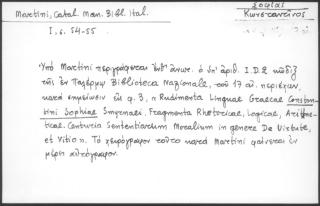 Σοφίας
Κωνσταντῖνος
Martini, Catal. Man. Bibl. Ital.
I, s. 54-55
Ὑπὸ Martini περιγράφεται ὑπ' ἀριθ. I.D.2 κῶδιξ
τῆς ἐν Παλέρμῳ Biblioteca Nazionale, τοῦ 17 αἰ. περιέχων,
κατὰ σημείωσιν ἐν φ. 3, « Rudimenta Linguae Graecae Constan-
tini Sophiae Smyrnaei Fragmenta Rhetorica, Logicae, Arithme-
ticae. Centuria Sententiarum Moralium in genere De Virtute,
et Vitio ». Τὸ χειρόγραφον τοῦτο κατὰ Martini φαίνεται ἐν
μέρει αὐτόγραφον.